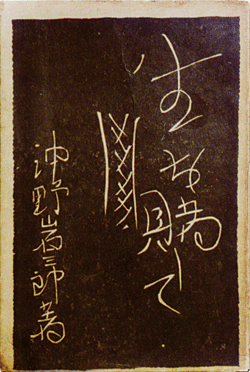 生を賭して
沖野岩三郎著